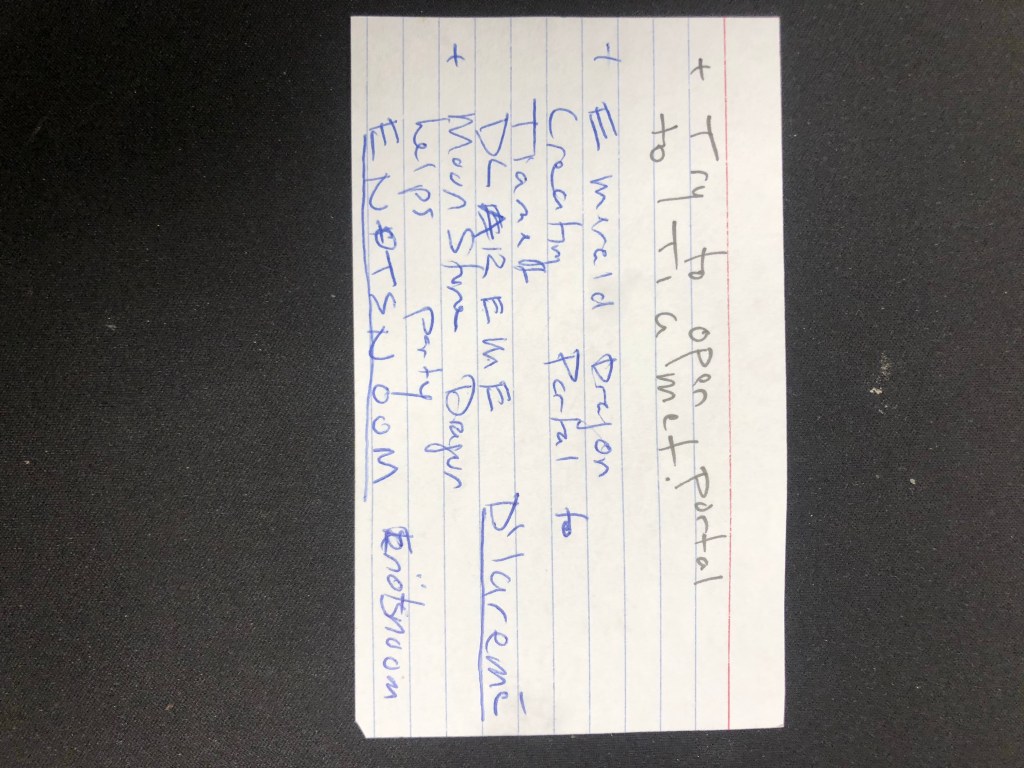 + Try to open portal
to Tiamet.
+ Emerald Dragon
Creatin Portal to
Tiamet
DLAREME D'laremé
+ Moon Stone Dagun
helps party
ENOTSNOOM Enotsnoom